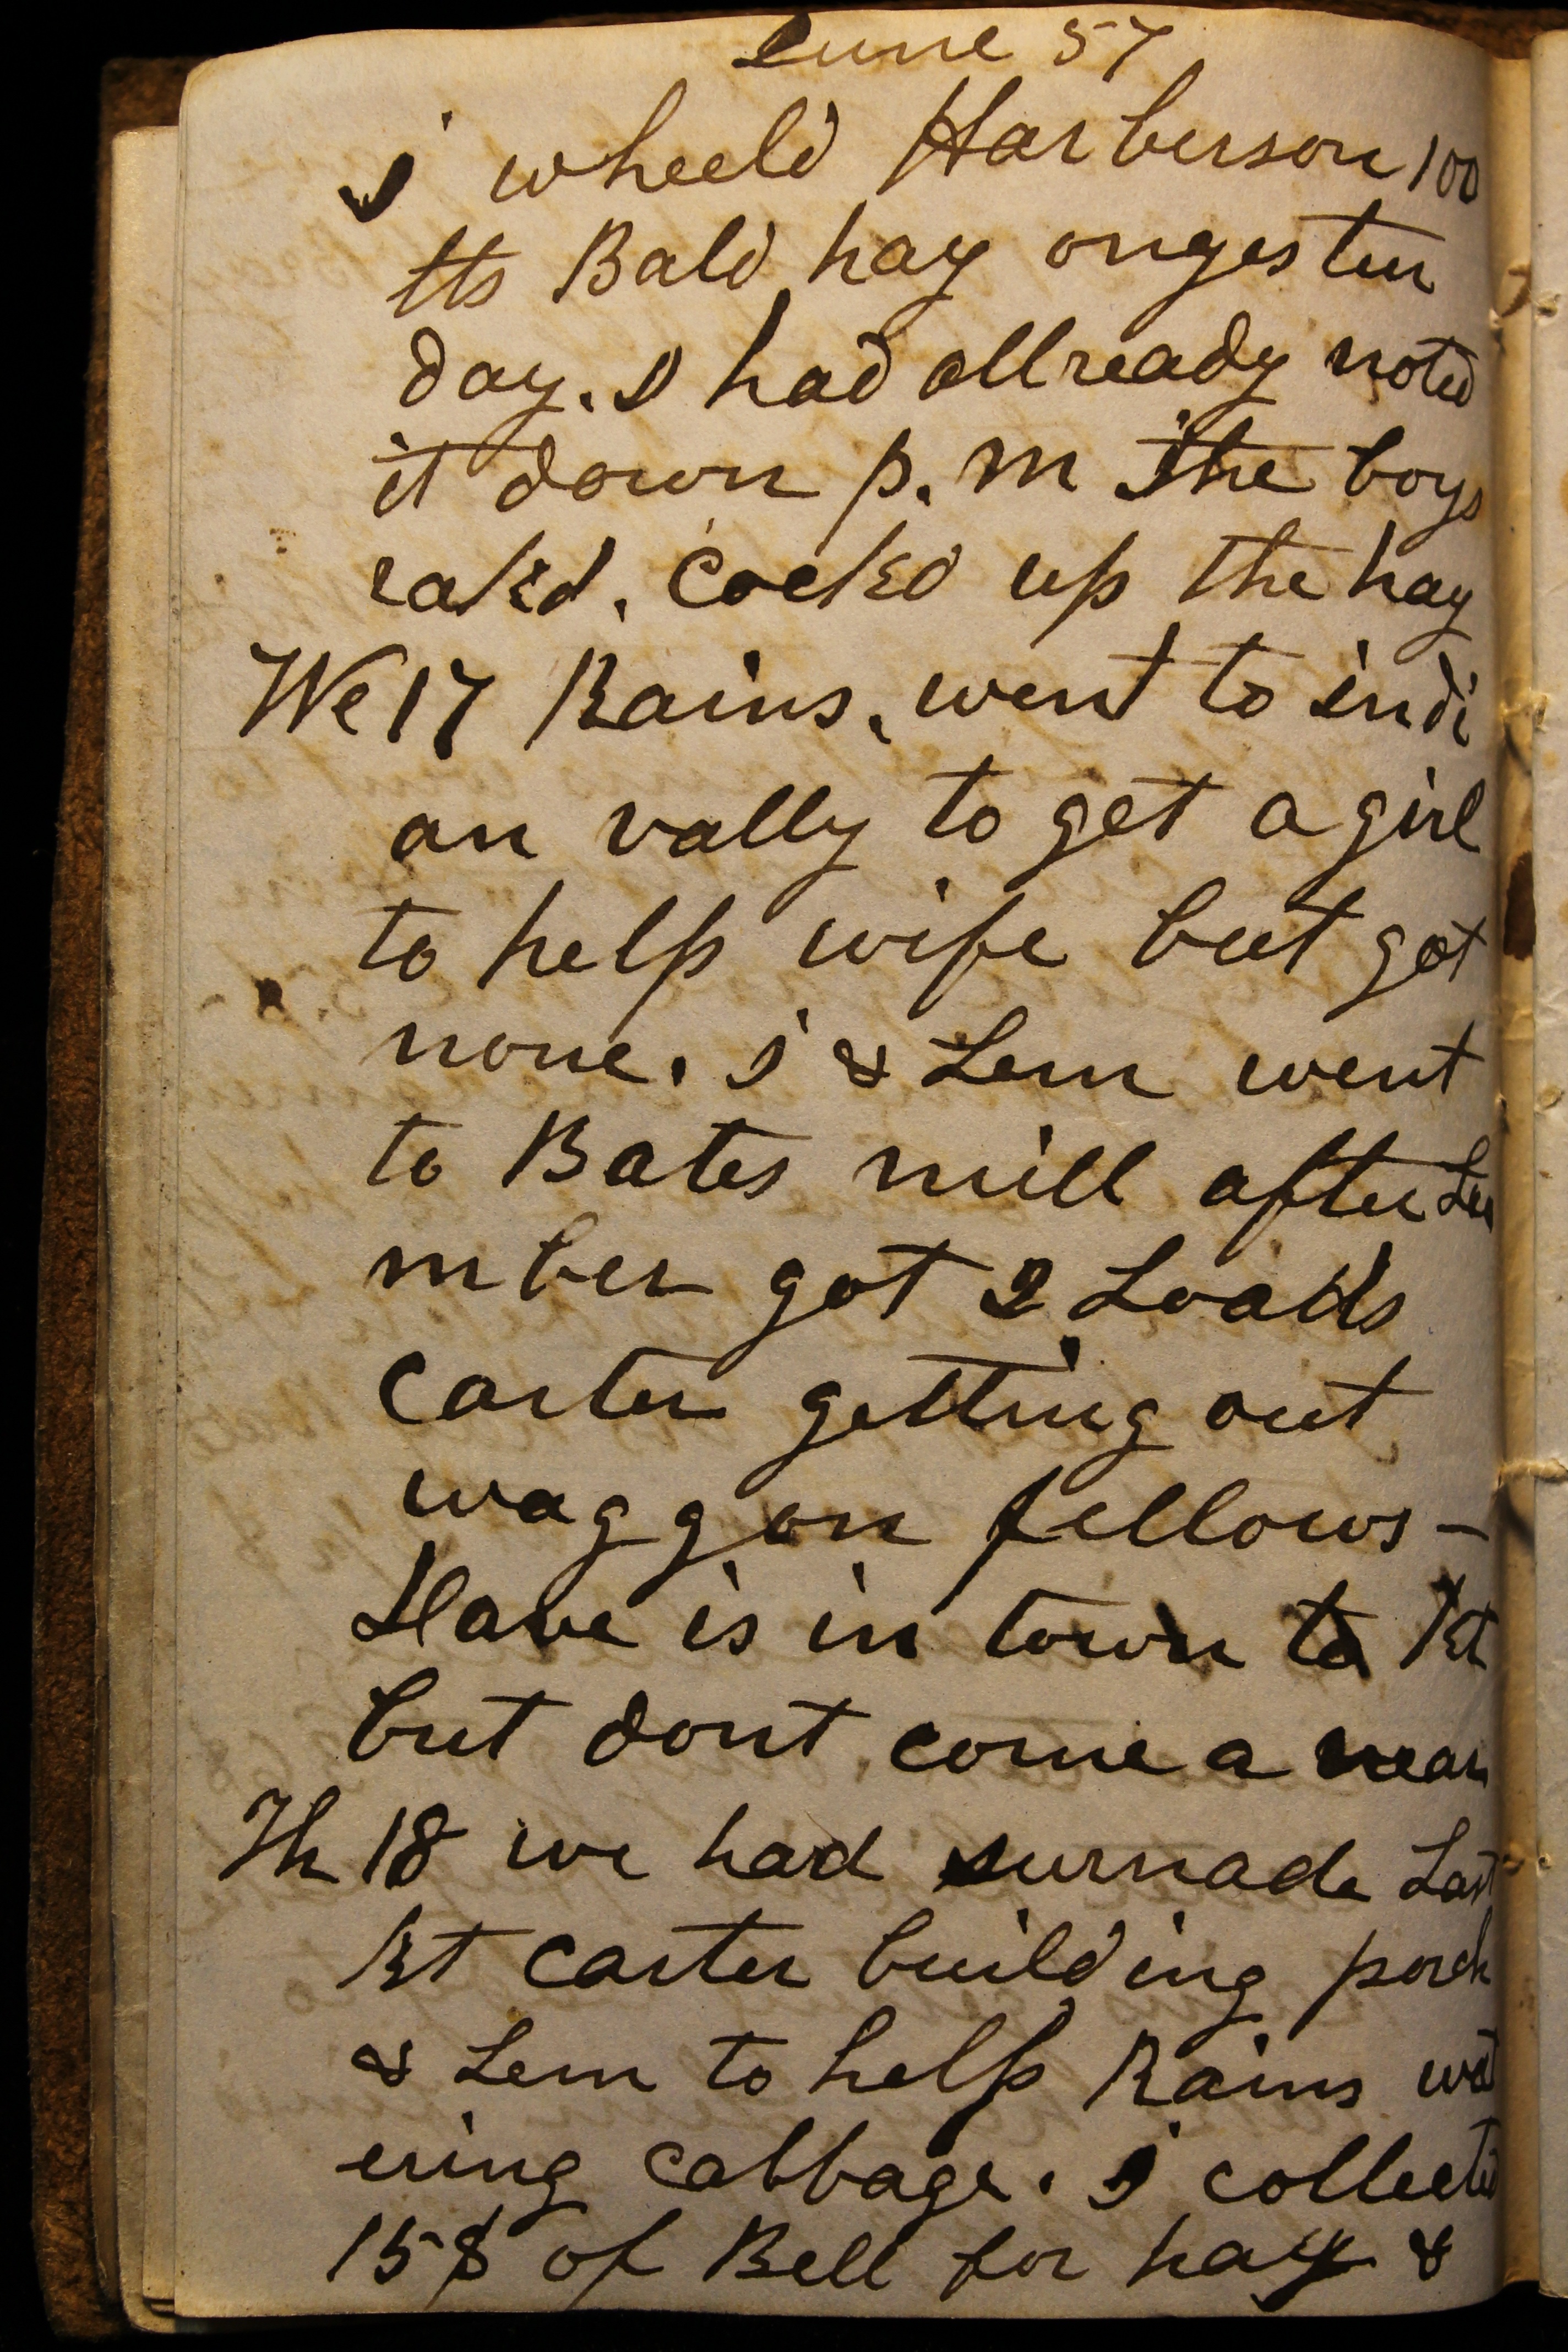 June 57
i wheeld Harberson 100
tts Bald hay onyester
day. I had allready noted
it down p. m the boys
rakd. cockd up the hay
We 17 Rains. went to indi
an vally to get a girl
to help wife but got
none. i & Lem went
to Bates mill after Lu
mber got 2 Loads
carter getting out
waggon fellows –
Dave is in town to Kt
but dont come a near
Th 18 we had surnade Last
Kt carter building porch
& Lem to help Rains wat
ering cabbage. I collected
15$ of Bell for hay &